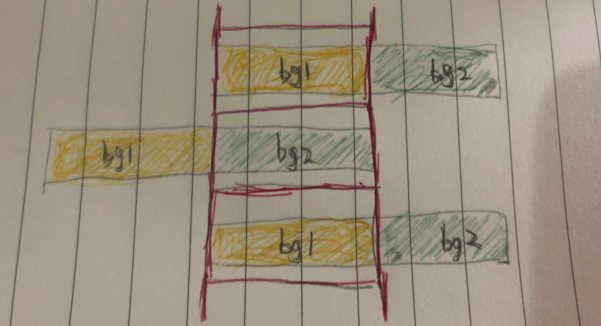 bg1 bg2
bg1 bg2
bg1 bg2